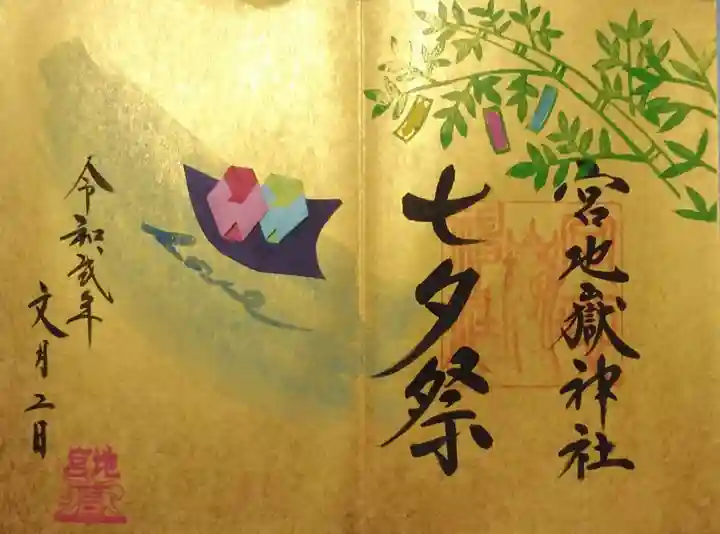 宮地嶽神社
七夕祭
令和弐年
文月二日
宮地嶽